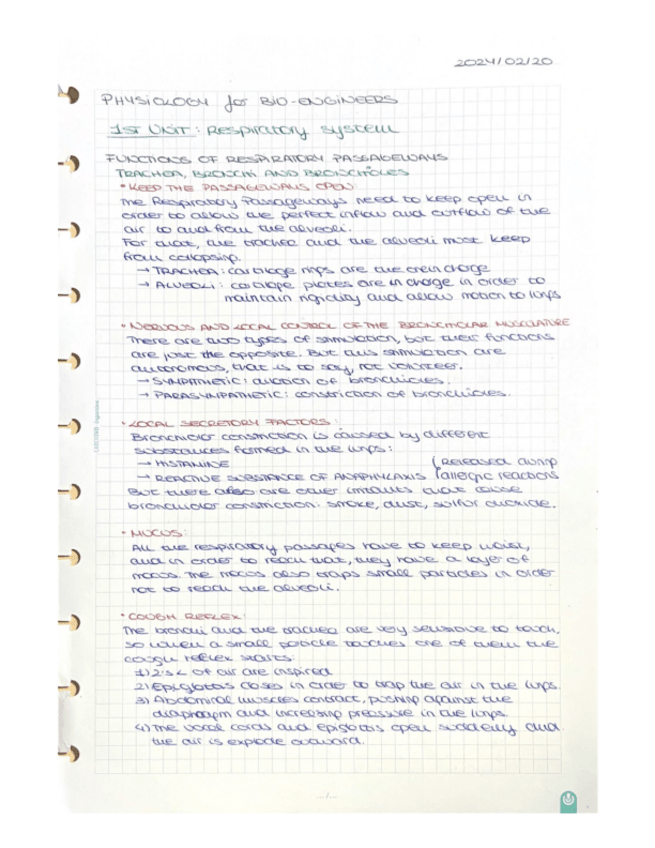 2024/02/20
PHYSIOLOGY for BIO-ENGINEERS
1ST UNIT: Respiratory system
FUNCTIONS OF RESPIRATORY PASSAGEWAYS
TRACHEA, BRONCHI AND BRONCHIOLES
• KEEP THE PASSAGEWAYS OPEN:
The Respiratory Passageways need to keep open in
order to allow the perfect inflow and outflow of the
air to and from the alveoli.
For that, the trachea and the alveoli must keep
from collapsing.
→ TRACHEA: cartilage rings are the in charge
→ ALVEOLI: cartilage plates are in charge in order to
maintain rigidity and allow motion to lungs
• NERVOUS AND LOCAL CONTROL OF THE BRONCHIOLAR MUSCULATURE
There are two types of stimulation, but their functions
are just the opposite. But this stimulation are
autonomous, that is to say, not volunteer.
→ SYMPATHETIC: dilation of bronchioles.
→ PARASYMPATHETIC: constriction of bronchioles.
• LOCAL SECRETORY FACTORS:
Bronchiolar constriction is caused by different
substances formed in the lungs:
→ HISTAMINE (Released during
→ REACTIVE SUBSTANCE OF ANAPHYLAXIS allergic reactions
But there also are other irritants that cause
bronchiolar constriction: smoke, dust, sulfur dioxide.
• MUCUS:
All the respiratory passages have to keep moist,
and in order to reach that, they have a layer of
mucus. The mucus also traps small particles in order
not to reach the alveoli.
• COUGH REFLEX:
The bronchi and the trachea are very sensitive to touch,
so when a small particle touches one of them the
cough reflex starts:
1) 2'5 L of air are inspired
2) Epiglottis closes in order to trap the air in the lungs.
3) Abdominal muscles contract, pushing against the
diaphragm and increasing pressure in the lungs.
4) The vocal cords and epiglottis open suddenly and
the air is explode outward.
.../...